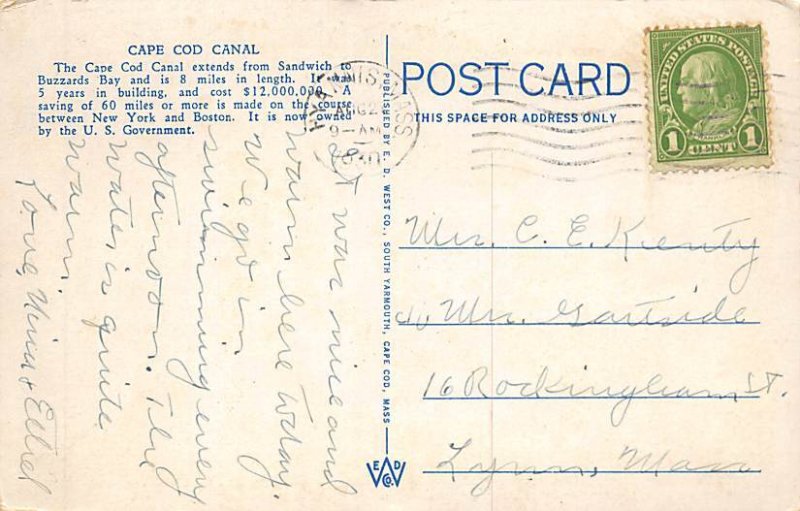 CAPE COD CANAL
The Cape Cod Canal extends from Sandwich to
Buzzards Bay and is 8 miles in length. It was
5 years in building, and cost $12,000,000. A
saving of 60 miles or more is made on the course
between New York and Boston. It is now owned
by the U. S. Government.
It was nice and
warm here today.
We go in
swimming every
afternoon. The
water is quite
warm.
Love, Nina & Ethel
PUBLISHED BY E. D. WEST CO., SOUTH YARMOUTH, CAPE COD, MASS
E D
W
CO.
HYANNIS MASS
AUG 2
9-AM
1930
POST CARD
THIS SPACE FOR ADDRESS ONLY
UNITED STATES POSTAGE
1 CENT 1
Mrs. C. E. Kienty
c/o Mrs. Gartside
16 Rockingham St.
Lynn, Mass